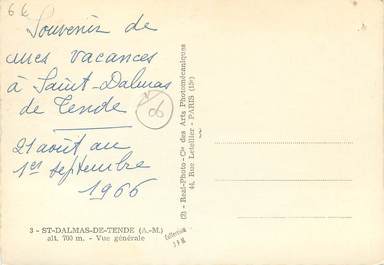 66
Souvenir de
mes vacances
à Saint-Dalmas
de Tende
21 août au
1er septembre
1966
3 - ST-DALMAS-DE-TENDE (A.-M.)
alt. 700 m. - Vue générale
(3) - Real-Photo - Cie des Arts Photomécaniques
44, Rue Letellier - PARIS (15e)
Collection